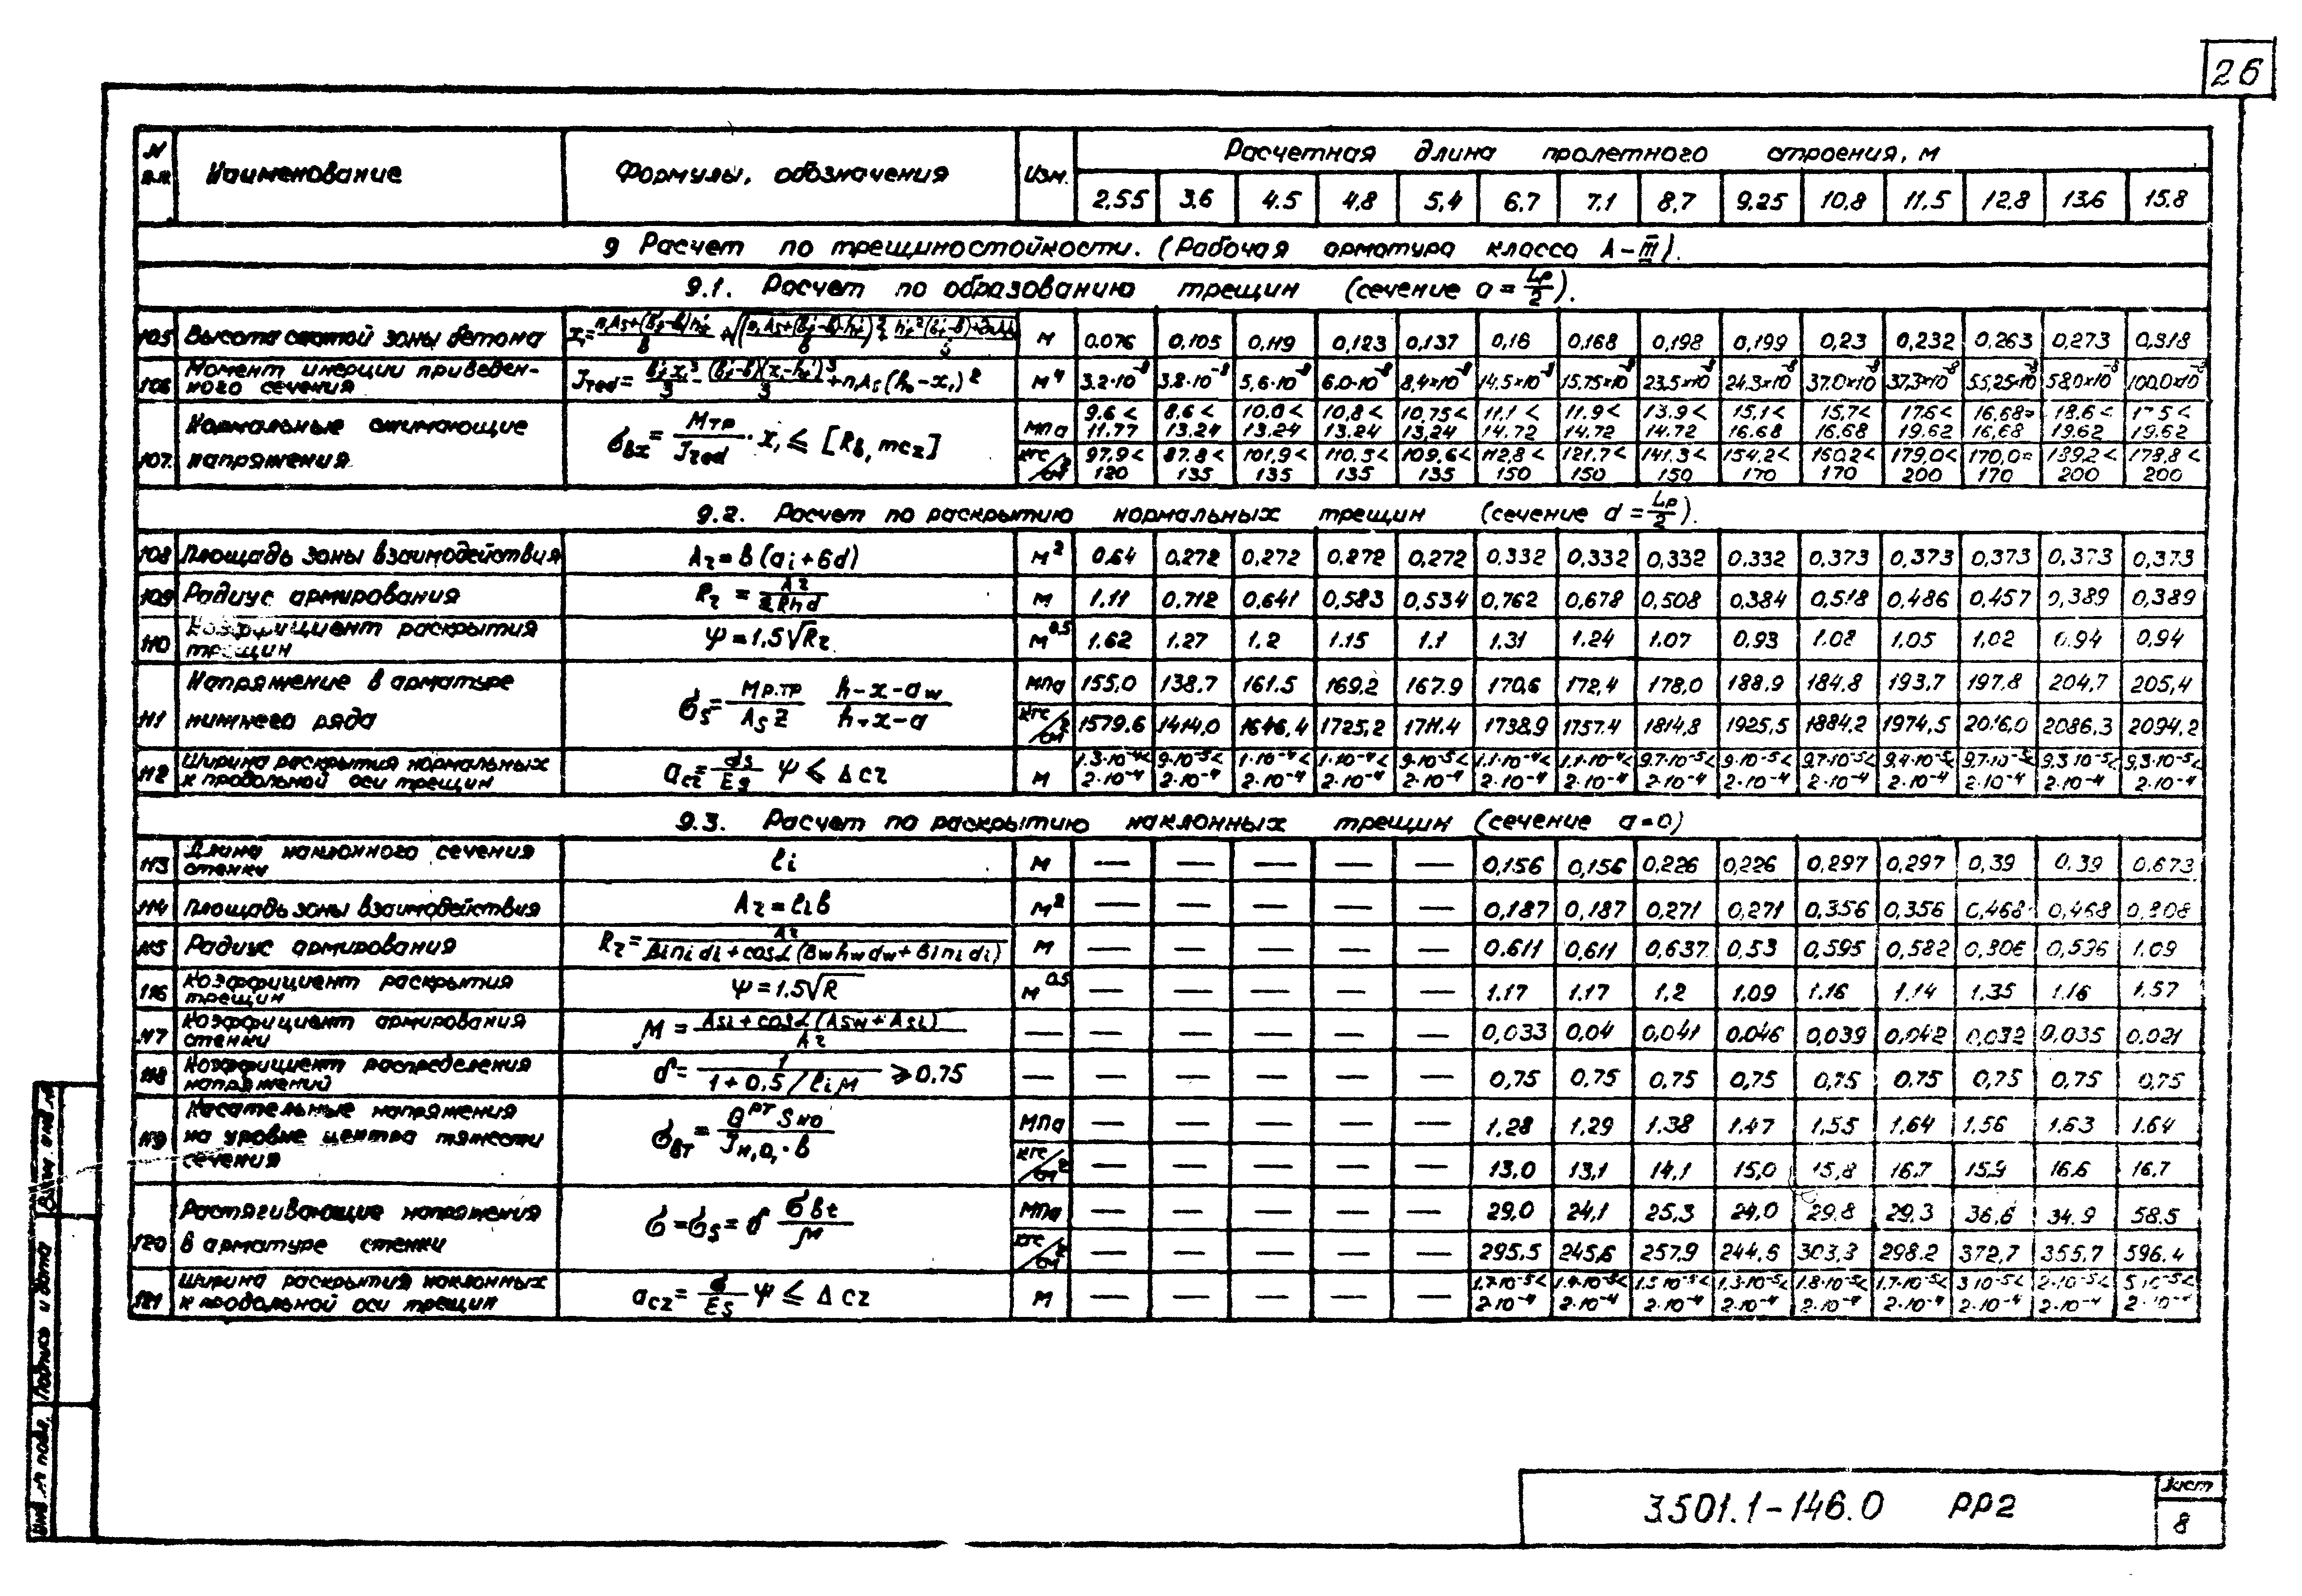 26
N п.п. Наименование Формулы, обозначения Изм. Расчетная длина пролетного строения, м
2,55 3,6 4.5 4,8 5,4 6.7 7.1 8,7 9,25 10,8 11,5 12,8 13,6 15.8
9 Расчет по трещиностойкости. (Рабочая арматура класса А-III).
9.1. Расчет по образованию трещин (сечение a = Lp/2).
105 Высота сжатой зоны бетона м 0.076 0,105 0,119 0,123 0,137 0,16 0,168 0,198 0,199 0,23 0,232 0,263 0,273 0,318
106 Момент инерции приведен-
ного сечения м⁴ 3.2·10⁻⁸ 3.8·10⁻⁸ 5,6·10⁻⁸ 6.0·10⁻⁸ 8,4×10⁻⁸ 14.5×10⁻⁸ 15.75×10⁻⁸ 23.5×10⁻⁸ 24.3×10⁻⁸ 37.0×10⁻⁸ 37.3×10⁻⁸ 55,25×10⁻⁸ 58.0×10⁻⁸ 100.0×10⁻⁸
107. Нормальные сжимающие
напряжения
МПа 9.6< 8,6< 10.0< 10,8< 10,75< 11,1< 11.9< 13.9< 15,1< 15,7< 17.6< 16,68= 18.6< 17.5<
11.77 13.24 13.24 13.24 13,24 14.72 14.72 14.72 16.68 16,68 19.62 16,68 19.62 19.62
кгс/см² 97.9< 87.8< 101,9< 110,5< 109,6< 112,8< 121,7< 141,3< 154,2< 160,2< 179,0< 170,0= 189,2< 178,8<
120 135 135 135 135 150 150 150 170 170 200 170 200 200
9.2. Расчет по раскрытию нормальных трещин (сечение d = Lp/2).
108 Площадь зоны взаимодействия Az = b (ai + 6d) м² 0,64 0,272 0,272 0,272 0,272 0,332 0,332 0,332 0,332 0,373 0,373 0,373 0,373 0,373
109 Радиус армирования м 1.11 0,712 0,641 0,583 0,534 0,762 0,678 0,508 0,384 0,518 0,486 0,457 0,389 0,389
110 Коэффициент раскрытия
трещин ψ = 1,5√Rz м⁰·⁵ 1.62 1.27 1.2 1.15 1.1 1.31 1.24 1.07 0.93 1.08 1.05 1.02 0.94 0.94
111 Напряжение в арматуре
нижнего ряда
σs = Mр.тр/As z · h-x-aw/h-x-a
МПа 155,0 138.7 161.5 169,2 167.9 170,6 172,4 178,0 188,9 184,8 193,7 197,8 204,7 205,4
кгс/см² 1579.6 1414,0 1646,4 1725,2 1711.4 1738,9 1757.4 1814,8 1925,5 1884,2 1974,5 2016,0 2086,3 2094,2
112 Ширина раскрытия нормальных
к продольной оси трещин acz = σs/Es ψ ≤ Δcz м
1.3·10⁻⁴< 9·10⁻⁵< 1·10⁻⁴< 1·10⁻⁴< 9·10⁻⁵< 1.1·10⁻⁴< 1.1·10⁻⁴< 9.7·10⁻⁵< 9·10⁻⁵< 9.7·10⁻⁵< 9.4·10⁻⁵< 9.7·10⁻⁵< 9.3·10⁻⁵< 9,3·10⁻⁵<
2·10⁻⁴ 2·10⁻⁴ 2·10⁻⁴ 2·10⁻⁴ 2·10⁻⁴ 2·10⁻⁴ 2·10⁻⁴ 2·10⁻⁴ 2·10⁻⁴ 2·10⁻⁴ 2·10⁻⁴ 2·10⁻⁴ 2·10⁻⁴ 2·10⁻⁴
9.3. Расчет по раскрытию наклонных трещин (сечение a=0)
113 Длина наклонного сечения
стенки ℓi м — — — — — 0,156 0,156 0,226 0,226 0,297 0,297 0,39 0,39 0.673
114 Площадь зоны взаимодействия Az = ℓib м² — — — — — 0,187 0,187 0,271 0,271 0,356 0,356 0,468 0,468 0,808
115 Радиус армирования м — — — — — 0.611 0,611 0,637 0,53 0,595 0,582 0,806 0,596 1.09
116 Коэффициент раскрытия
трещин ψ = 1.5√R м⁰·⁵ — — — — — 1.17 1.17 1.2 1.09 1.16 1.14 1.35 1.16 1.57
117 Коэффициент армирования
стенки — — — — — — 0,033 0,04 0,041 0.046 0,039 0,042 0,032 0,035 0,021
118 Коэффициент распределения
напряжений δ = 1/1+0,5/ℓiμ ≥ 0,75 — — — — — — 0,75 0.75 0,75 0,75 0,75 0.75 0,75 0,75 0,75
119 Касательные напряжения
на уровне центра тяжести
сечения
МПа — — — — — 1,28 1,29 1.38 1.47 1,55 1,64 1.56 1,63 1.64
кгс/см² — — — — — 13,0 13,1 14,1 15,0 15,8 16.7 15,9 16,6 16,7
120 Растягивающие напряжения
в арматуре стенки
σ = σs = δ σbt/μ
МПа — — — — — 29,0 24,1 25,3 24,0 29.8 29,3 36,6 34.9 58.5
кгс/см² — — — — — 295,5 245,6 257.9 244,6 303,3 298.2 372,7 355.7 596.4
121 Ширина раскрытия наклонных
к продольной оси трещин acz = σ/Es ψ ≤ Δcz м — — — — —
1.7·10⁻⁵< 1.4·10⁻⁵< 1.5·10⁻⁵< 1,3·10⁻⁵< 1.8·10⁻⁵< 1.7·10⁻⁵< 3·10⁻⁵< 2·10⁻⁵< 5·10⁻⁵<
2·10⁻⁴ 2·10⁻⁴ 2·10⁻⁴ 2·10⁻⁴ 2·10⁻⁴ 2·10⁻⁴ 2·10⁻⁴ 2·10⁻⁴ 2·10⁻⁴
Взам. инв. №
Подпись и дата
Инв. № подл.
3.501.1-146.0 РР2
Лист
8